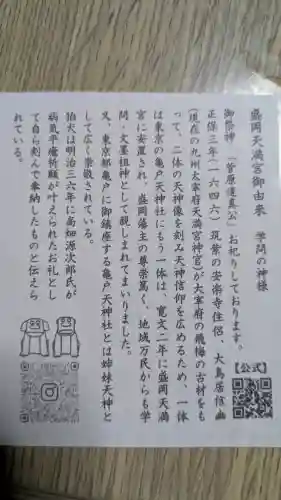 盛岡天満宮御由来　学問の神様
御祭神　「菅原道真公」お祀りしております。
正保三年（一六四六）筑紫の安楽寺住侶、大鳥居信幽
（現在の九州太宰府天満宮神官）が大宰府の飛梅の古材をも
って、二体の天神像を刻み天神信仰を広めるため、一体
は東京の亀戸天神社にもう一体は、寛文二年に盛岡天満
宮に安置され、盛岡藩主の尊崇篤く、地域万民からも学
問・文墨祖神として親しまれてまいりました。
又、東京都亀戸に御鎮座する亀戸天神社とは姉妹天神と
して広く崇敬されている。
狛犬は明治三六年に高畑源次郎氏が
病気平癒祈願が叶えられたお礼とし
て自ら刻んで奉納したものと伝えら
れている。
【公式】